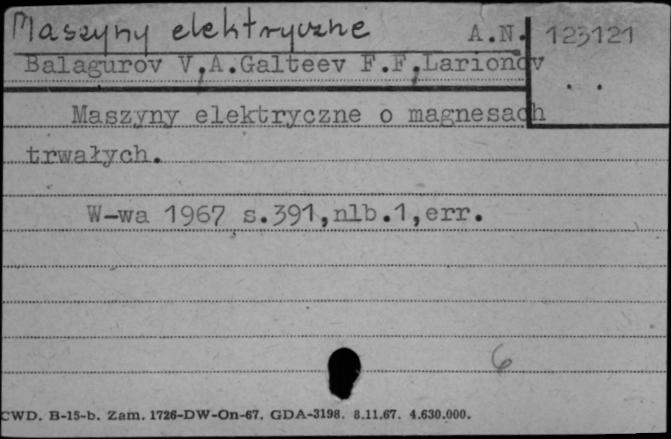 Maszyny elektryczne A.N. 123121
Balagurov V,A.Galteev F.F,Larionov
Maszyny elektryczne o magnesach
trwałych.
W-wa 1967 s.391,nlb.1,err.
6
CWD. B-15-b. Zam. 1726-DW-On-67. GDA-3198. 8.11.67. 4.630.000.